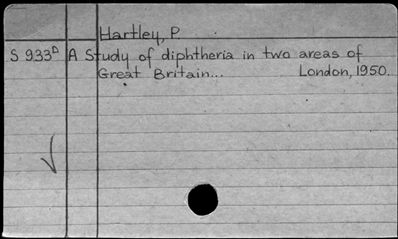 Hartley, P.
S 933ᴰ A Study of diphtheria in two areas of
Great Britain... London, 1950.